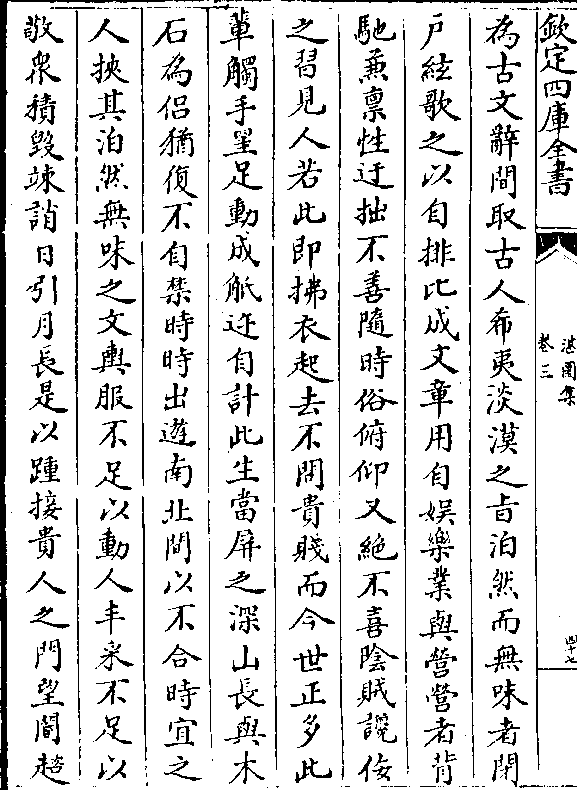 欽定四庫全書
湛園集
卷三
四十七
為古文辭間取古人希夷淡漠之旨泊然而無味者閉
戶絃歌之以自排比成文章用自娛樂業與營營者背
馳兼禀性迂拙不善隨時俗俯仰又絶不喜陰賊讒佞
之習見人若此即拂衣起去不問貴賤而今世正多此
輩觸手罣足動成觝迕自計此生當屏之深山長與木
石為侣猶復不自禁時時出遊南北間以不合時宜之
人挾其泊然無味之文輿服不足以動人丰采不足以
敬衆積毁竦誚日引月長是以踵接貴人之門望閽趦